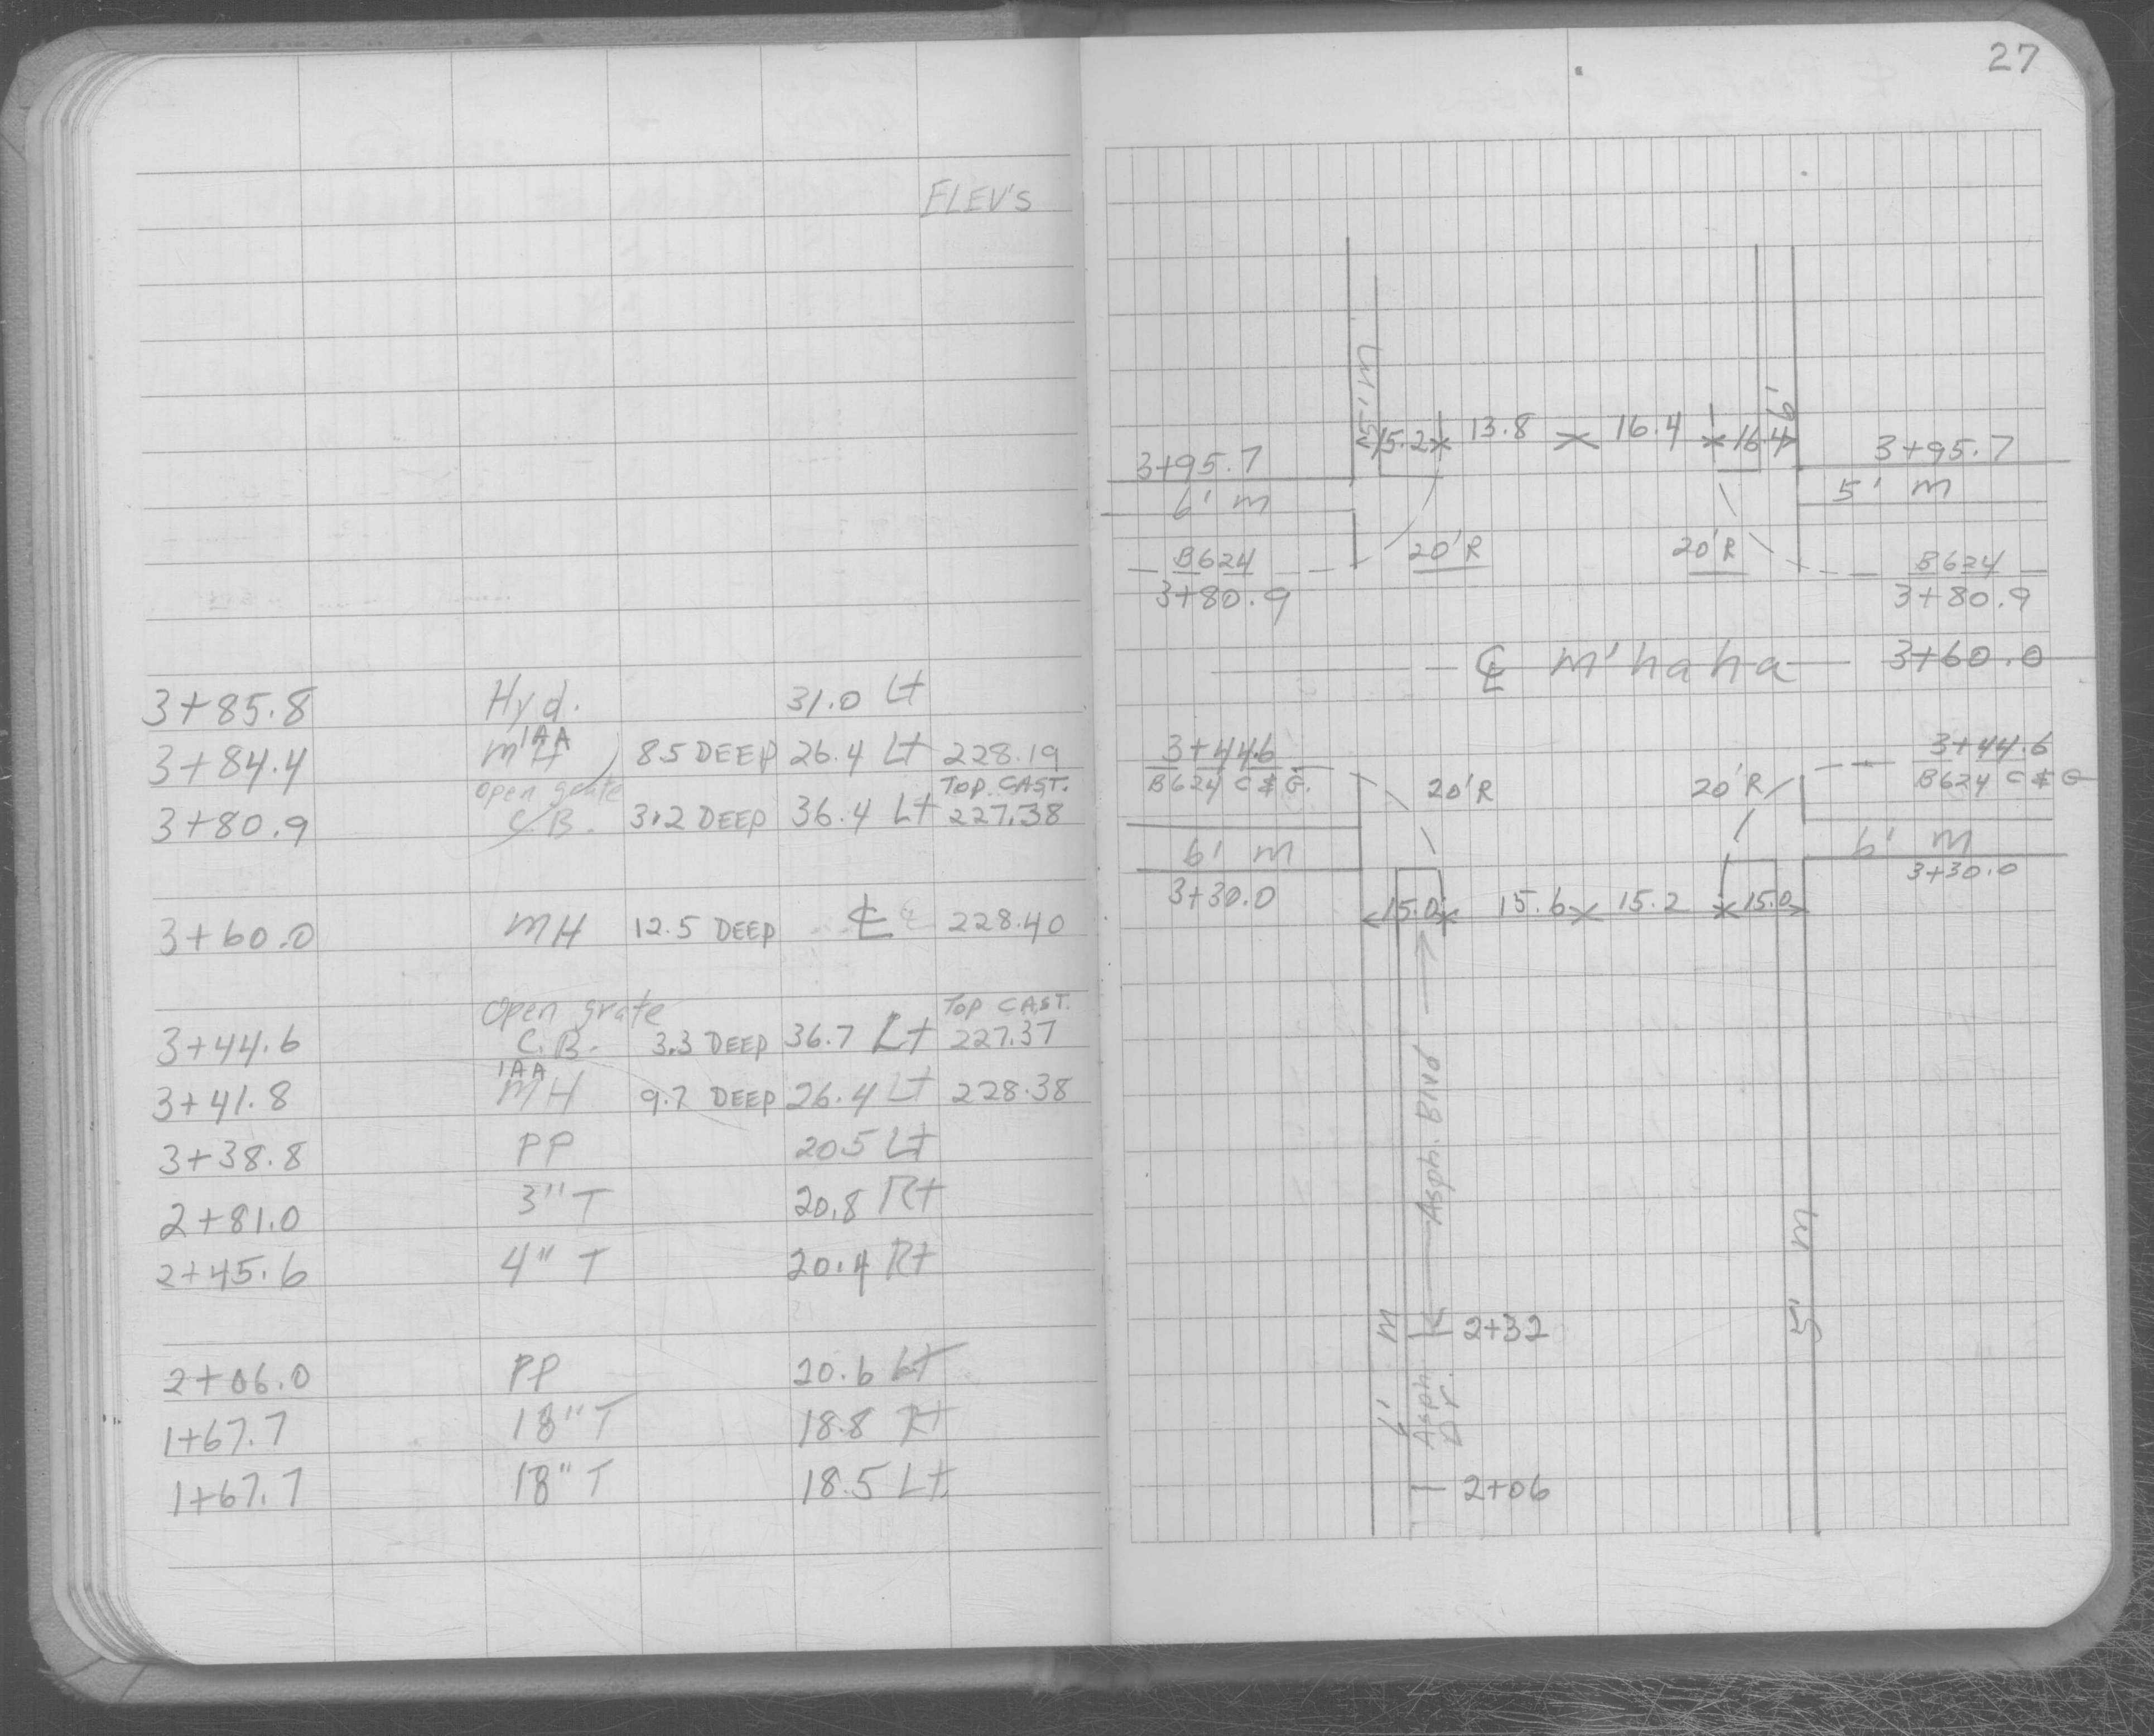 27
ELEV'S
3+85.8 Hyd. 31.0 Lt
1AA
3+84.4 MH 8.5 DEEP 26.4 Lt 228.19
open grate TOP CAST.
3+80.9 C.B. 3.2 DEEP 36.4 Lt 227.38
3+60.0 MH 12.5 DEEP ℄ 228.40
Open grate TOP CAST.
3+44.6 C.B. 3.3 DEEP 36.7 Lt 227.37
1AA
3+41.8 MH 9.7 DEEP 26.4 Lt 228.38
3+38.8 PP 20.5 Lt
2+81.0 3" T 20.8 Rt
2+45.6 4" T 20.4 Rt
2+06.0 PP 20.6 Lt
1+67.7 18" T 18.8 Rt
1+67.7 18" T 18.5 Lt
5' M
6'
15.2 13.8 16.4 16.4
3+95.7 3+95.7
6' M 5' M
20'R 20'R
B624 B624
3+80.9 3+80.9
℄ M'haha 3+60.0
3+44.6 3+44.6
B624 C & G. B624 C & G
20'R 20'R
6' M 6' M
3+30.0 3+30.0
15.0 15.6 15.2 15.0
Asph. Blvd
5' M
6' M
2+32
Asph.
Dr.
2+06